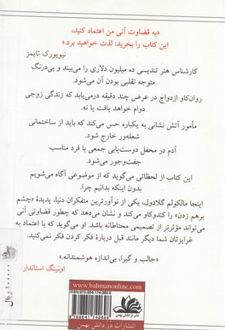 «به قضاوت آنی من اعتماد کنید،
این کتاب را بخرید: لذت خواهید برد.»
نیویورک تایمز
کارشناس هنر تندیسی ده میلیون دلاری را می‌بیند و بی‌درنگ
متوجه تقلبی بودن آن می‌شود.
روان‌کاو ازدواج در عرض چند دقیقه درمی‌یابد که زندگی زوجی
دوام خواهد یافت یا نه.
مأمور آتش نشانی به یکباره حس می‌کند که باید از ساختمانی
شعله‌ور خارج شود.
آدم در محفل دوست‌یابی جمعی با فرد مناسب
جفت‌وجور می‌شود.
این کتاب از لحظاتی می‌گوید که از موضوعی آگاه می‌شویم
بدون اینکه بدانیم چرا.
اینجا مالکولم گلادول، یکی از نوآورترین متفکران دنیا، پدیدهٔ «چشم
برهم زدن» را کندوکاو می‌کند و نشان می‌دهد که چطور قضاوتی آنی
می‌تواند مؤثرتر از تصمیمی محتاطانه باشد. با اعتماد کردن به
غرایزتان شما دیگر مانند قبل دربارهٔ فکر کردن فکر نمی‌کنید.
«جالب و گیرا، بی‌اندازه هوشمندانه.»
اونینگ استاندارد
www.bahmanonline.com
انتشارات در دانش بهمن